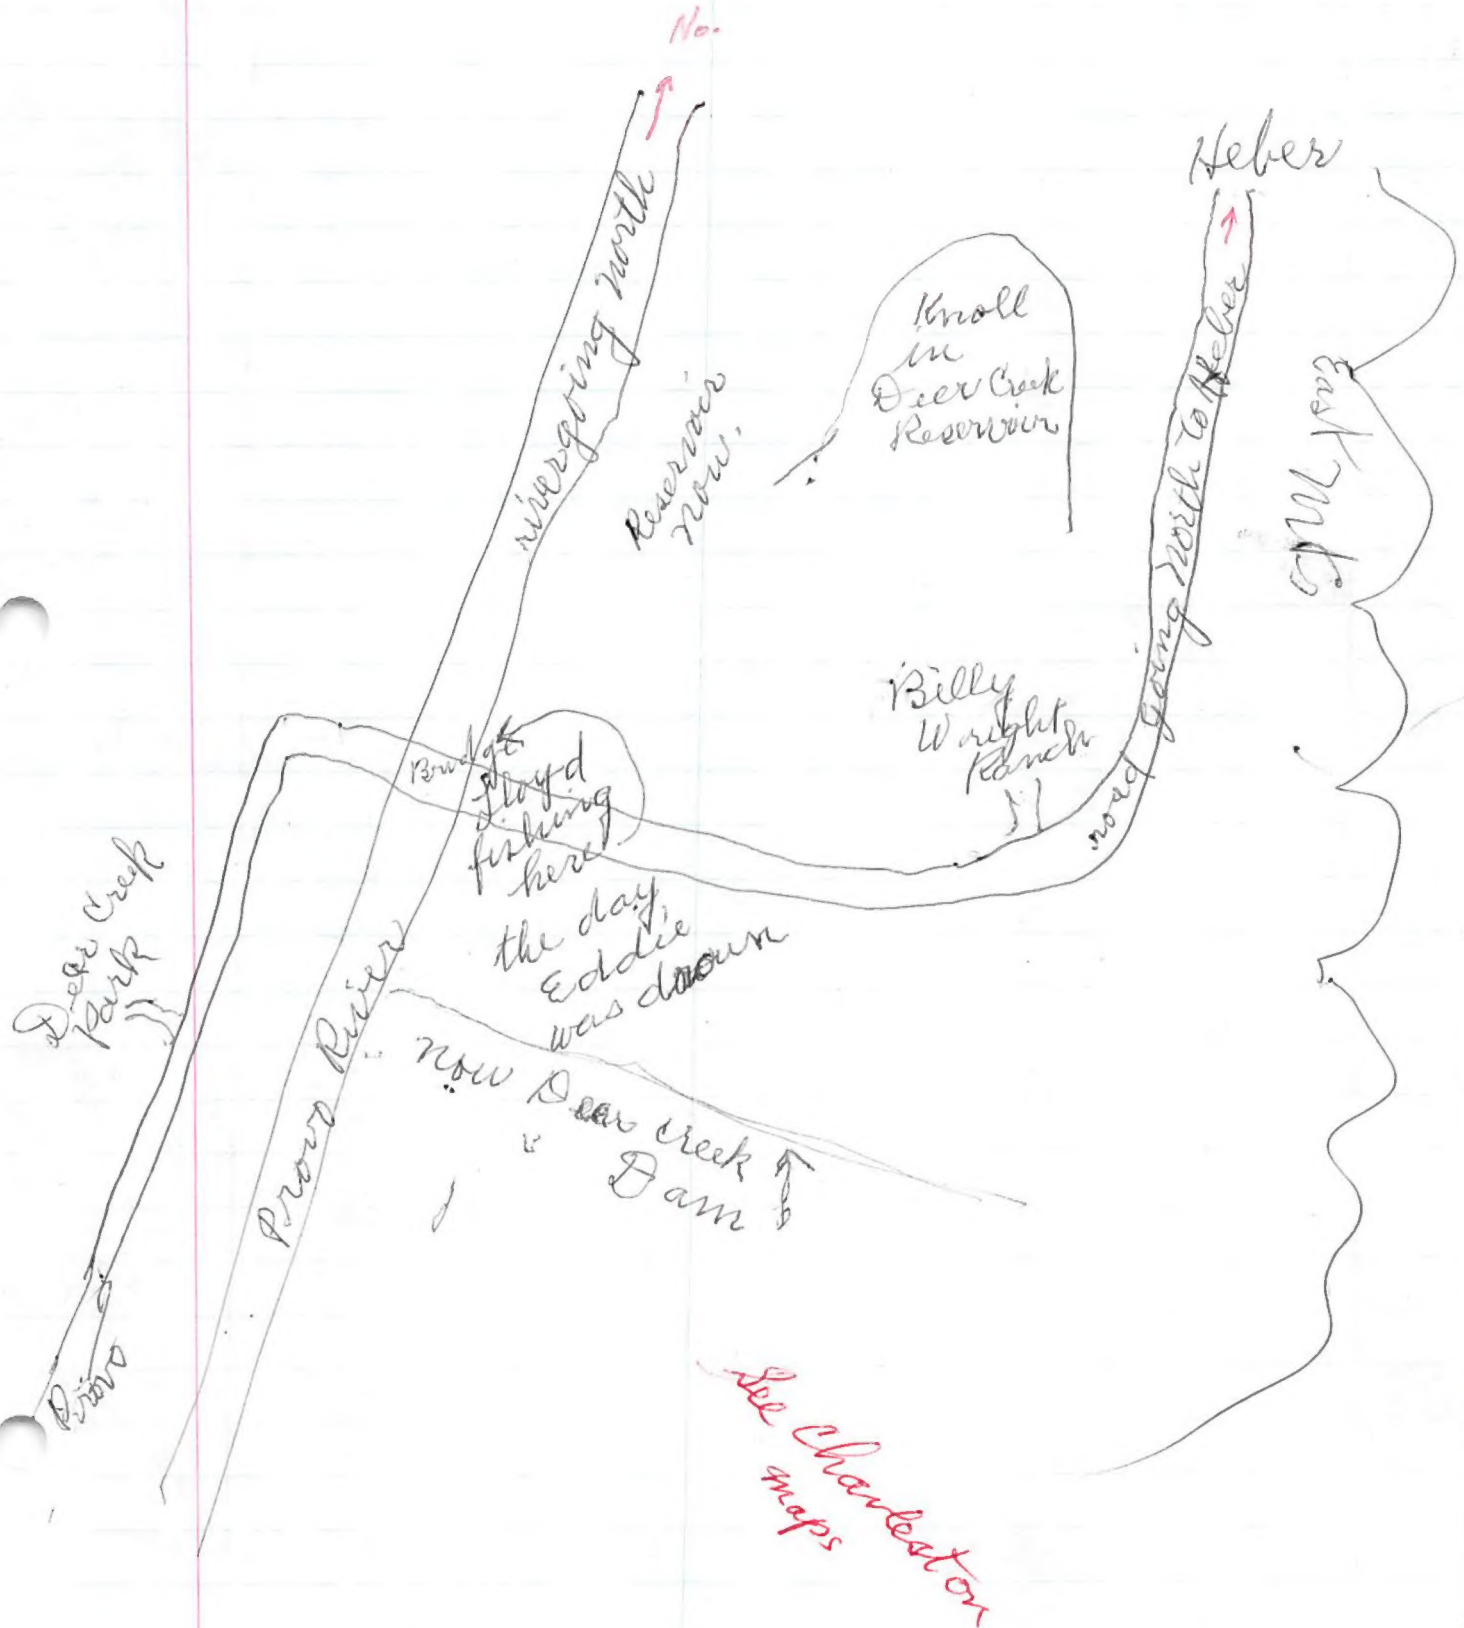 No.
Heber
river going north
Reservoir
now.
Knoll
in
Deer Creek
Reservoir
road going north to Heber
East Mts
Billy
Wright
Ranch
Bridge
Floyd
fishing
here
the day
Eddie
was drown
Deer Creek
Park
Provo River
now Deer Creek
Dam
Provo
See Charleston
maps